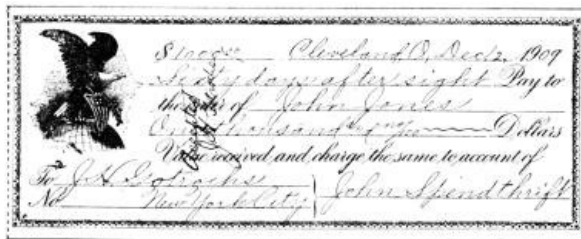 $1000.00 Cleveland, O, Dec 2, 1909
Sixty days after sight Pay to
the order of John Jones
One thousand and no/100 Dollars
Value received and charge the same to account of
To J. H. Gotrocks
No. New York City
John Spendthrift
Accepted